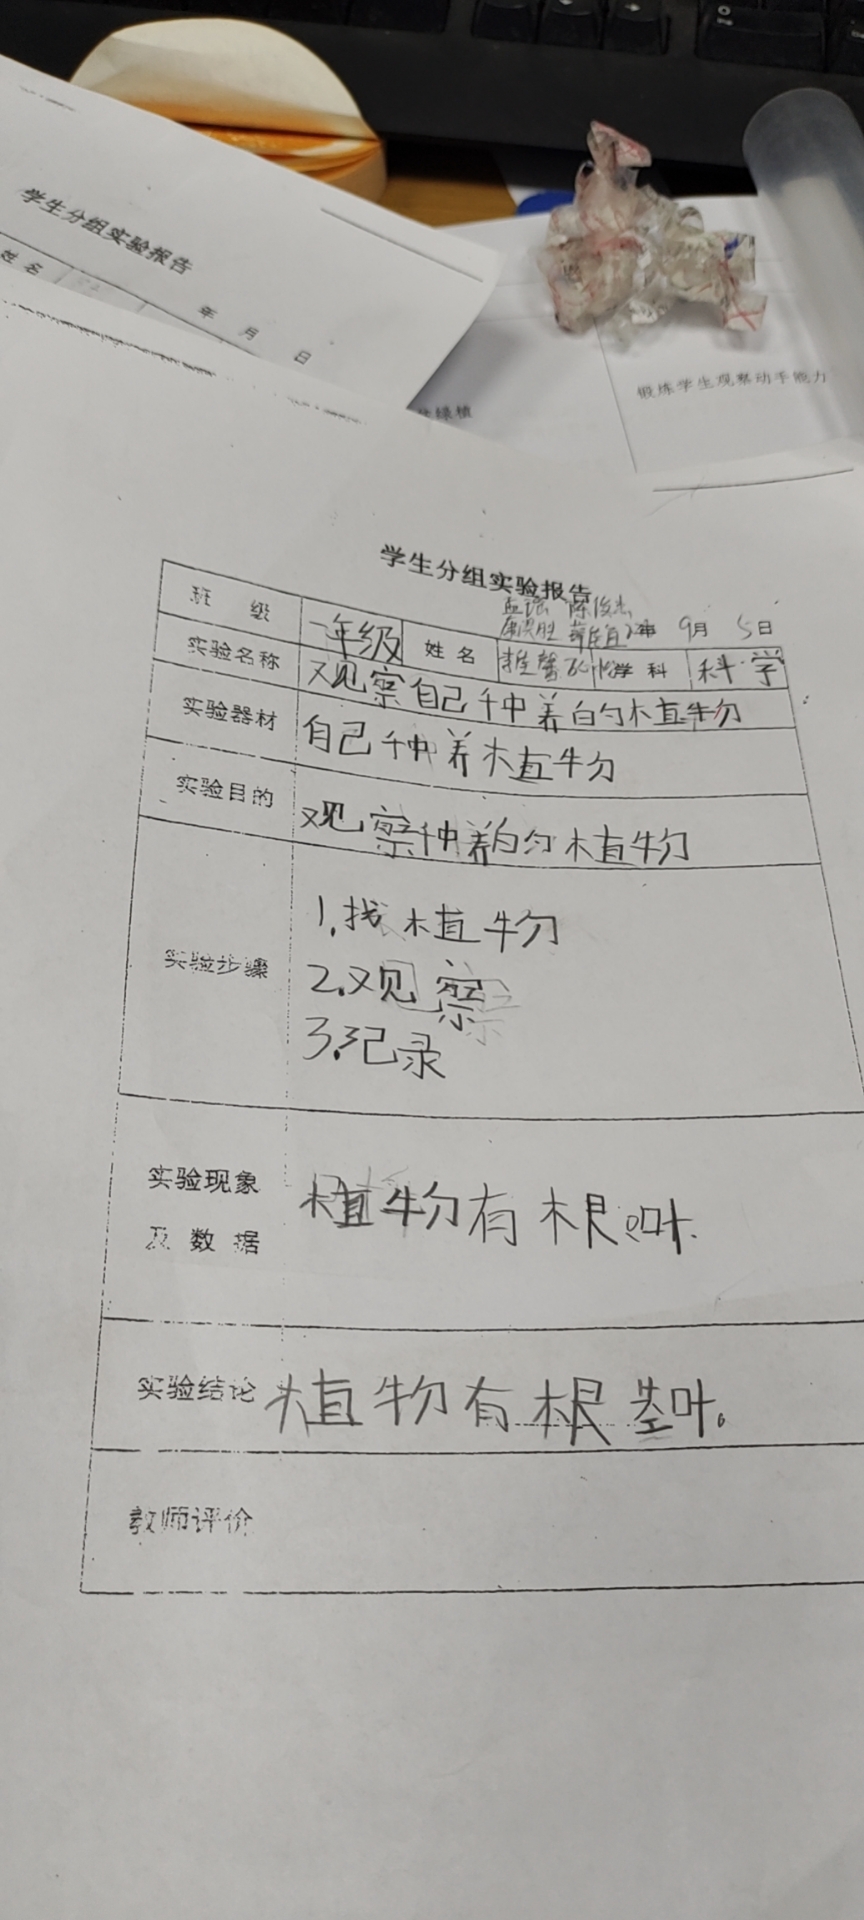 学生分组实验报告
姓名
年 月 日
锻炼学生观察动手能力
绿植
学生分组实验报告
年 9月 5日
班级 一年级 姓名 学科 科学
实验名称 观察自己种养的植物
实验器材 自己种养植物
实验目的 观察种养的植物
实验步骤
1.找植物
2.观察
3.记录
实验现象 植物有根 叶.
及数据
实验结论 植物有根茎叶。
教师评价